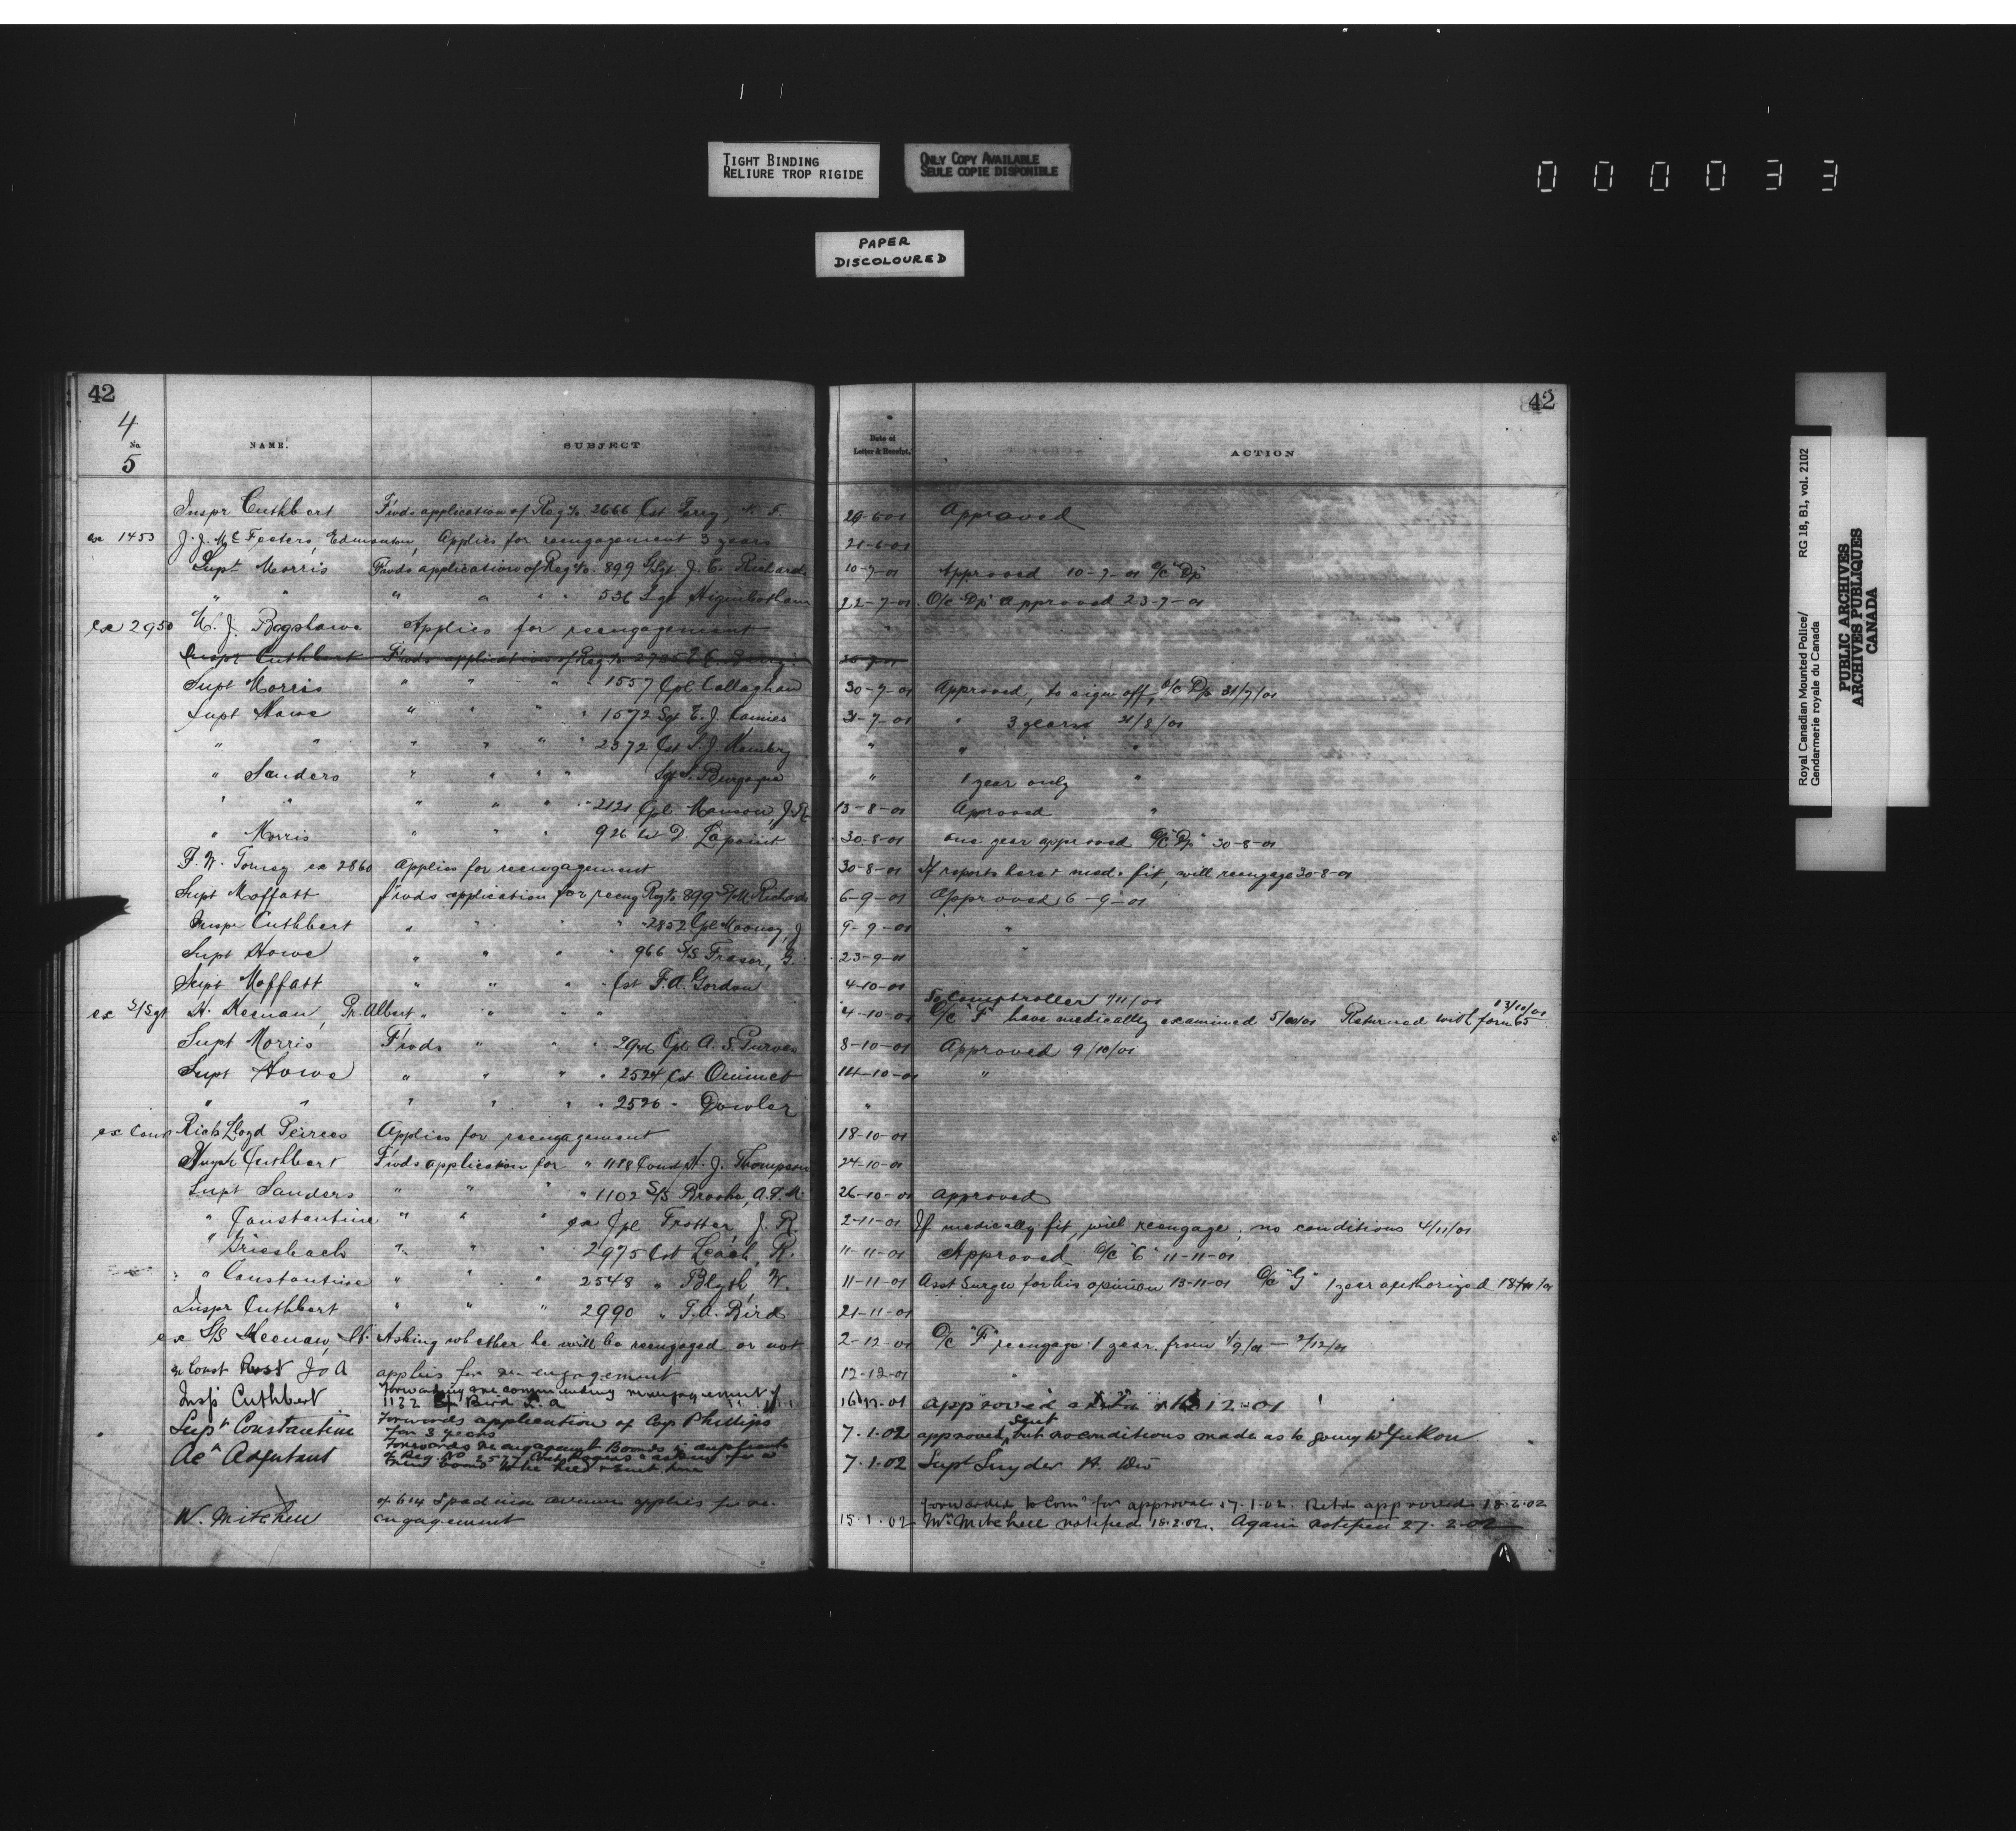 TIGHT BINDING
RELIURE TROP RIGIDE
ONLY COPY AVAILABLE
SEULE COPIE DISPONIBLE
000033
PAPER
DISCOLOURED
42 42
4
No
5
NAME. SUBJECT Date of Letter & Receipt. ACTION
Inspr Cuthbert Fwds application of Reg No. 2666 Cst 29-6-01 Approved
ex 1453 J. J. McFeeters, Edmonton, Applies for reengagement 3 years 21-6-01
Supt Morris Fwds application of Reg No. 899 J. C. Richards 10-7-01 Approved 10-7-01 O/C "Dp"
" " " " " " 536 Sgt Higinbotham 22-7-01 O/C "Dp" Approved 23-7-01
ex 2950 W. J. Bagshawe Applies for reengagement "
Inspr Cuthbert Fwds application of Reg No. 2735
Supt Morris " " " " 1557 Cpl Callaghan 30-7-01 Approved, to sign off, O/C Dp 31/7/01
Supt Howe " " " " 1572 Sgt 31-7-01 " 3 years
" " " " " " 2372 Cst " " "
" Sanders " " " " Sgt S. Burgoyne " 1 year only "
" " " " " " 2121 Cpl Manson, J.R. 13-8-01 Aproved "
" Morris " " " " 926 Cst D. Lapoint 30-8-01 one year approved O/C "Dp" 30-8-01
F. W. ex 2860 applies for reengagement 30-8-01 If reports here & med. fit, will reengage 30-8-01
Supt Moffatt fwds application for reeng Reg No. 899 Richards 6-9-01 Approved 6-9-01
Inspr Cuthbert " " " " 2852 Cpl Mooney, J 9-9-01 "
Supt Howe " " " " 966 S/S Fraser, G. 23-9-01 "
Supt Moffatt " " " " Cst F. A. Gordon 4-10-01
To Comptroller 7/11/01 13/10/01
ex S/Sgt H. Keenan, Pr. Albert " " " " 4-10-01 O/C "F" have medically examined 5/10/01 Returned with form 65
Supt Morris Fwds " " " Cpl A. S. Purves 8-10-01 Approved 9/10/01
Supt Howe " " " " 2524 Cst Ouimet 14-10-01 "
" " " " " " 2526 " Dowler "
ex Const Rich Lloyd Peirces Applies for reengagement 18-10-01
Inspr Cuthbert Fwds application for " 1118 Const H. J. Thompson 24-10-01
Supt Sanders " " " " 1102 S/S Brooke, 26-10-01 approved
" Constantine " " " ex Cpl Trotter, J. R. 2-11-01 If medically fit, will reengage, no conditions 4/11/01
" Griesbach " " " 2975 Cst Leach, R. 11-11-01 Approved O/C "G" 11-11-01
" Constantine " " " 2548 " Blyth, W. 11-11-01 Asst Surgn for his opinion 13-11-01 O/C "G" 1 year authorized
Inspr Cuthbert " " " 2990 " Bird 21-11-01
ex S/S Keenan, H. Asking whether he will be reengaged or not 2-12-01 O/C "F" reengage 1 year from 1/9/01 — 2/12/01
ex Const Rust applies for re engagement 12-12-01
Insp Cuthbert forwarding recommending reengagement of
1122 Bird 16-12-01 approved 12-01
Supt Constantine Forwards application of Corp Phillips
for 3 years 7.1.02 approved sent but no conditions made as to going to Yukon
Ac Adjutant Forwards re engagement Bonds in
of Reg. No 2577 Const Rogers & asking for a
new bond to be & sent him 7.1.02 Supt Snyder H. Div
W. Mitchell of 614 Spadina avenue applies for re
engagement 15.1.02 forwarded to Com for approval 17.1.02. Retd approved 18.2.02
Mr Mitchell notified 18.2.02. Again notified 27.2.02
Royal Canadian Mounted Police/ RG 18, B1, vol. 2102
Gendarmerie royale du Canada
PUBLIC ARCHIVES
ARCHIVES PUBLIQUES
CANADA